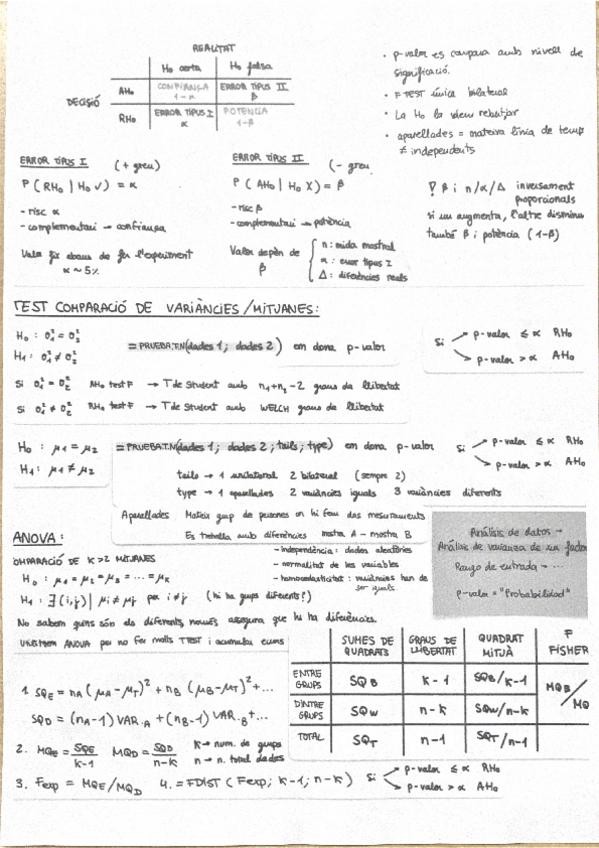 REALITAT
Ho certa Ho falsa
DECISIÓ AHo CONFIANÇA 1-α ERROR TIPUS II β
RHo ERROR TIPUS I α POTENCIA 1-β
· p-valor es compara amb nivell de
significació.
· F TEST única bilateral
· La Ho la volem rebutjar
· aparellades = mateixa línia de temps
≠ independents
ERROR TIPUS I (+ greu)
P (RHo | Ho √) = α
- risc α
- complementari → confiança
Valor fix abans de fer l'experiment
α ~ 5%
ERROR TIPUS II (- greu
P (AHo | Ho X) = β
- risc β
- complementari → potència
Valor depèn de β
n: mida mostral
α: error tipus I
Δ: diferències reals
! β i n/α/Δ inversament
proporcionals
si un augmenta, l'altre disminu
també β i potència (1-β)
TEST COMPARACIÓ DE VARIÀNCIES/MITJANES:
Ho : σ₁² = σ₂²
H1 : σ₁² ≠ σ₂²
= PRUEBA.T.N(dades 1; dades 2) em dona p-valor
Si p-valor ≤ α RHo
p-valor > α AHo
Si σ₁² = σ₂² AHo test F → T de Student amb n1+n2-2 graus de llibertat
Si σ₁² ≠ σ₂² RHo test F → T de Student amb WELCH graus de llibertat
Ho : μ1 = μ2
H1 : μ1 ≠ μ2
= PRUEBA.T.N(dades 1; dades 2; tails; type) em dona p-valor
Si p-valor ≤ α RHo
p-valor > α AHo
tails → 1 unilateral 2 bilateral (sempre 2)
type → 1 aparellades 2 variàncies iguals 3 variàncies diferents
Aparellades Mateix grup de persones on hi fem dos mesuraments
Es treballa amb diferències mostra A - mostra B
ANOVA:
OMPARACIÓ DE K>2 MITJANES
- independència: dades aleatòries
- normalitat de les variables
- homocedasticitat: variàncies han de
ser iguals
Ho : μ1 = μ2 = μ3 = ... = μK
H1 : ∃ (i,j) | μi ≠ μj per i ≠ j (hi ha grups diferents!)
No sabem quins són els diferents només assegura que hi ha diferències.
Utilitzem ANOVA per no fer molts T TEST i acumular errors
Análisis de datos →
Análisis de varianza de un factor
Rango de entrada → ...
p-valor = "Probabilidad"
SUMES DE QUADRATS GRAUS DE LLIBERTAT QUADRAT MITJÀ F FISHER
ENTRE GRUPS SQB K-1 SQB/K-1 MQB/MQ
DINTRE GRUPS SQW n-K SQW/n-K
TOTAL SQT n-1 SQT/n-1
1 SQE = nA (μA-μT)² + nB (μB-μT)² + ...
SQD = (nA-1) VAR.A + (nB-1) VAR.B + ...
2. MQE = SQE/K-1 MQD = SQD/n-K K → num. de grups
n → n. total dades
3. Fexp = MQE/MQD 4. = FDIST (Fexp; K-1; n-K) Si p-valor ≤ α RHo
p-valor > α AHo